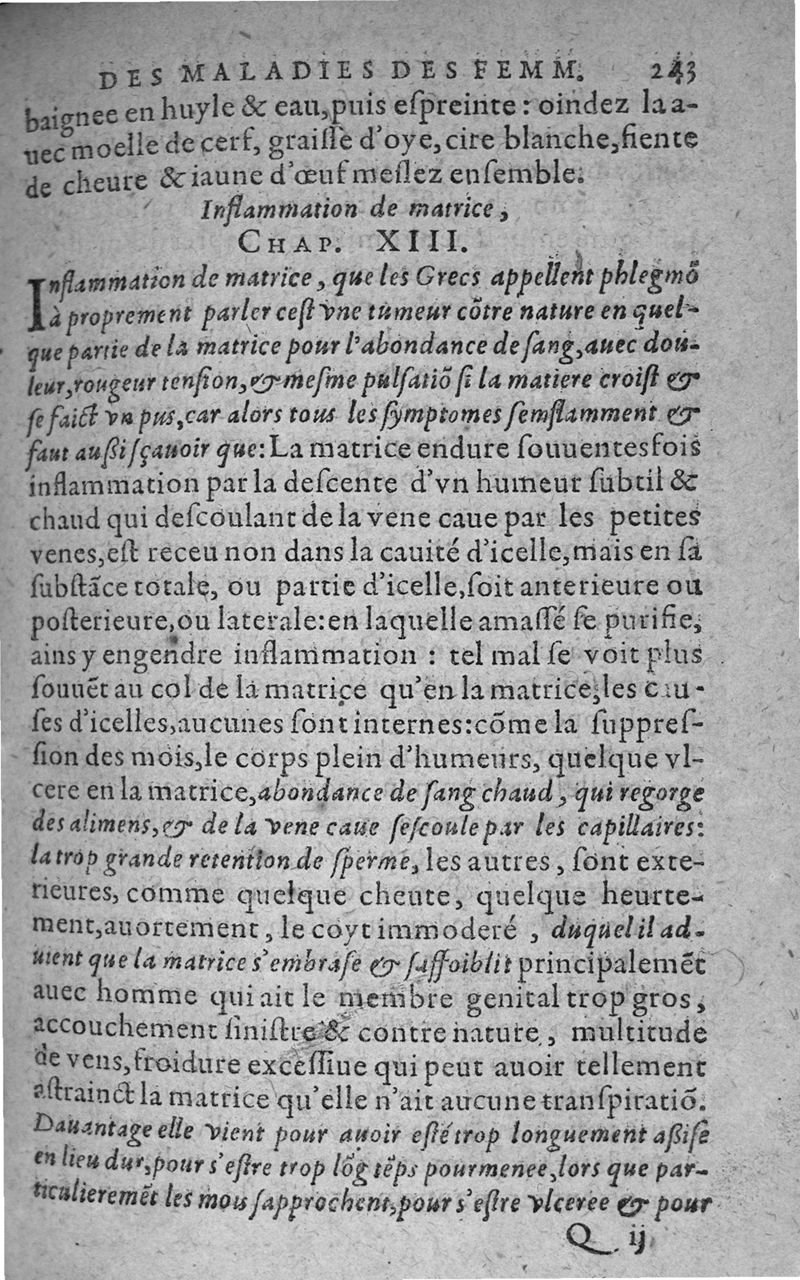 DES MALADIES DES FEMM. 243
baignee en huyle & eau, puis eſpreinte : oindez la a-
uec moelle de cerf, graiſſe d'oye, cire blanche, fiente
de cheure & iaune d'œuf meſlez enſemble.
Inflammation de matrice,
CHAP. XIII.
Inflammation de matrice, que les Grecs appellent phlegmõ
à proprement parler ceſt vne tumeur cõtre nature en quel-
que partie de la matrice pour l'abondance de ſang, auec dou-
leur, rougeur tenſion, & meſme pulſatiõ ſi la matiere croiſt &
ſe faict vn pus, car alors tous les ſymptomes ſemflamment &
faut außi ſçauoir que: La matrice endure ſouuentesfois
inflammation par la deſcente d'vn humeur ſubtil &
chaud qui deſcoulant de la vene caue par les petites
venes, eſt receu non dans la cauité d'icelle, mais en ſa
ſubſtãce totale, ou partie d'icelle, ſoit anterieure ou
poſterieure, ou laterale: en laquelle amaſſé ſe purifie,
ains y engendre inflammation : tel mal ſe voit plus
ſouuẽt au col de la matrice qu'en la matrice, les cau-
ſes d'icelles, aucunes ſont internes: cõme la ſuppreſ-
ſion des mois, le corps plein d'humeurs, quelque vl-
cere en la matrice, abondance de ſang chaud, qui regorge
des alimens, & de la vene caue ſeſcoule par les capillaires:
la trop grande retention de ſperme, les autres, ſont exte-
rieures, comme quelque cheute, quelque heurte-
ment, auortement, le coyt immoderé , duquel il ad-
uient que la matrice s'embraſe & ſaffoiblit principalemẽt
auec homme qui ait le membre genital trop gros,
accouchement ſiniſtre & contre nature, multitude
de vens, froidure exceſſiue qui peut auoir tellement
aſtrainct la matrice qu'elle n'ait aucune tranſpiratiõ.
Dauantage elle vient pour auoir eſté trop longuement aßiſe
en lieu dur, pour s'eſtre trop lõg tẽps pourmenee, lors que par-
ticulieremẽt les mous ſapprochent, pour s'eſtre vlceree & pour
Q ij